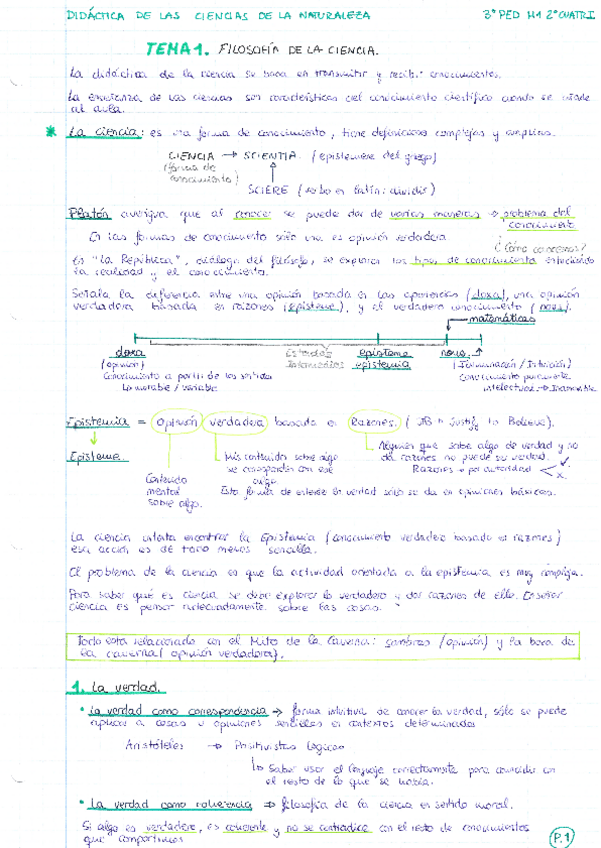 DIDÁCTICA DE LAS CIENCIAS DE LA NATURALEZA 3º PED M1 2º CUATRI
TEMA 1. FILOSOFÍA DE LA CIENCIA.
La didáctica de la ciencia se basa en transmitir y recibir conocimientos.
La enseñanza de las ciencias son características del conocimiento científico cuando se
al aula.
* La ciencia: es una forma de conocimiento, tiene definiciones complejas y amplias.
CIENCIA → SCIENTIA (episteme del griego)
(forma de
conocimiento)
SCIERE (verbo en latín: dividir)
Platón averigua que al conocer se puede dar de varias maneras → problema del
conocimiento
En las formas de conocimiento sólo una es opinión verdadera.
¿Cómo conocemos?
En "La República", diálogo del filósofo, se exploran los tipos de conocimiento
la realidad y el conocimiento.
Señala la diferencia entre una opinión basada en las apariencias (doxa), una opinión
verdadera basada en razones (episteme), y el verdadero conocimiento (nous).
matemáticas
doxa Estadios episteme nous
(opinión) Intermedios epistemia (Iluminación / Intuición)
Conocimiento a partir de los sentidos Conocimiento puramente
Lo mutable / variable intelectual → Inamovible
Epistemia = Opinión verdadera basada en Razones. (JB = Justify to Believe).
Episteme
Mis contenidos sobre algo
se corresponden con ese
algo.
Alguien que sabe algo de verdad y no
da razones no puede ser verdad.
Razones → por autoridad ✓ x
Contenido
mental
sobre algo.
Esta forma de entender la verdad sólo se da en opiniones básicas.
La ciencia intenta encontrar la Epistemia (conocimiento verdadero basado en razones)
esa acción es de todo menos sencilla.
El problema de la ciencia es que la actividad orientada a la epistemia es muy compleja.
Para saber qué es ciencia se debe explorar lo verdadero y dar razones de ello. Enseñar
ciencia es pensar adecuadamente sobre las cosas.
Todo está relacionado con el Mito de la Caverna: sombras (opinión) y la boca de
la caverna (opinión verdadera).
1. La verdad.
• La verdad como correspondencia → forma intuitiva de conocer la verdad, sólo se puede
aplicar a cosas u opiniones sencillas en contextos determinados
Aristóteles → Positivistas lógicos
↳ Saber usar el lenguaje correctamente para coincidir con
el resto de lo que se habla.
• La verdad como coherencia → filosofía de la ciencia en sentido moral.
Si algo es verdadero, es coherente y no se contradice con el resto de conocimientos
que compartimos
P.1